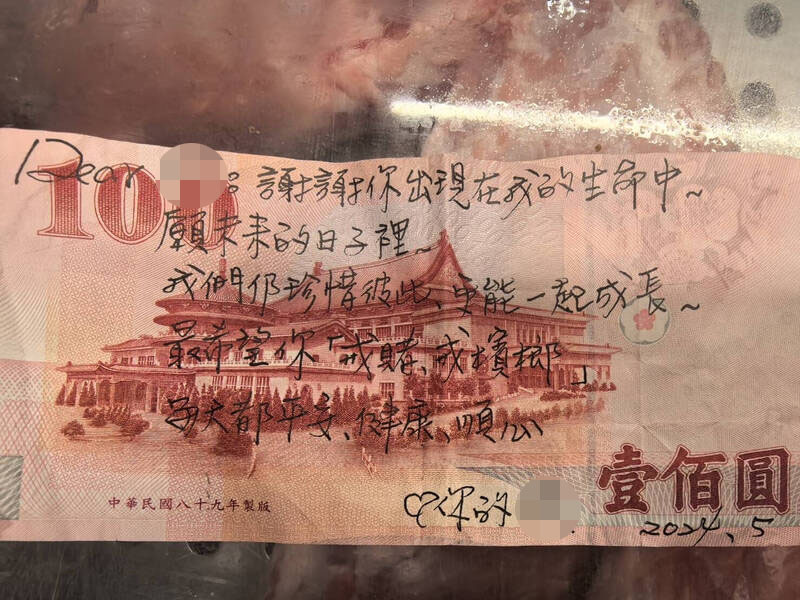 100
Dear : 謝謝你出現在我的生命中~
願未來的日子裡~
我們仍珍惜彼此、更能一起成長~
最希望你「戒賭、戒檳榔」
每天都平安、健康、順心
中華民國八十九年製版
♡你的
壹佰圓
2024、5